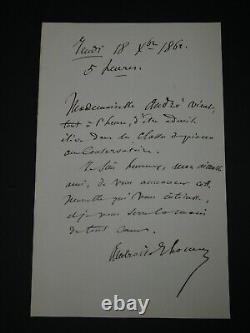 Jeudi 18 Xbre 186
5 heures.
Mademoiselle André vient,
à l'heure, d'être
élève dans la classe de piano
au Conservatoire.
Je suis heureux, mon
ami, de vous annoncer cette
nouvelle qui vous intéresse,
et je vous serre la main
de tout cœur.
Ambroise Thomas